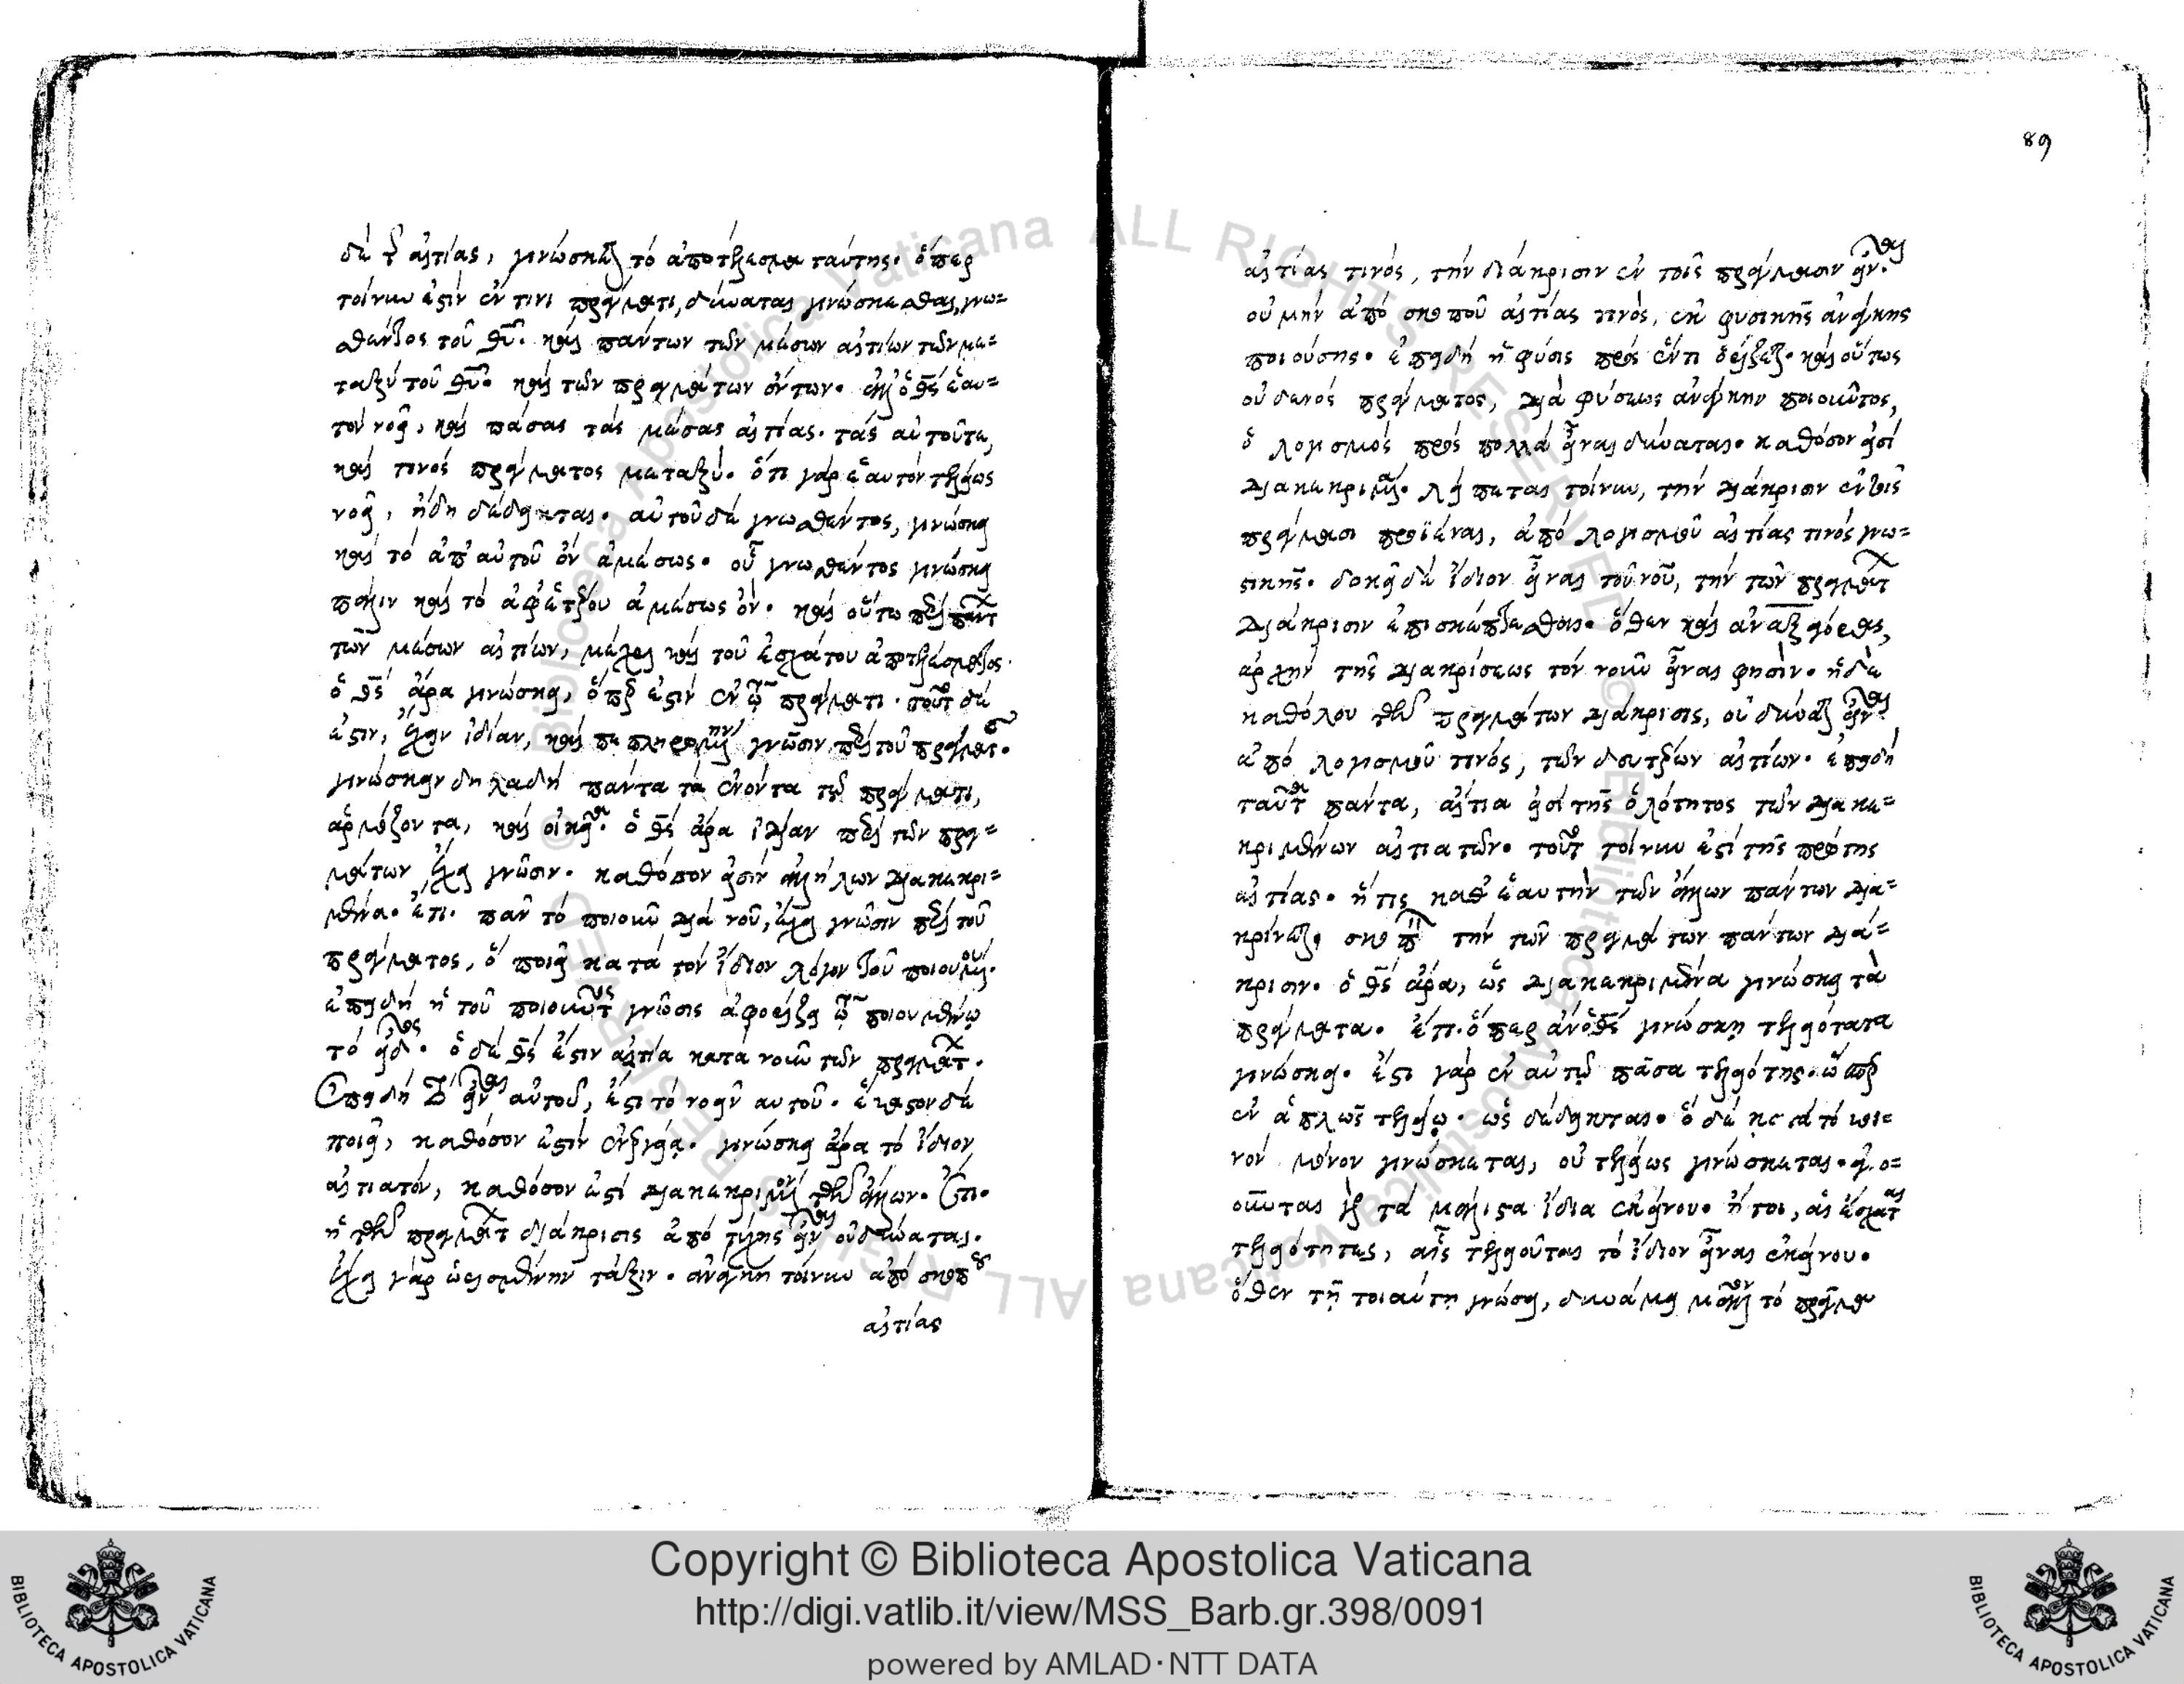 δὲ τῆς αἰτίας, γινώσκεται τὸ ἀποτέλεσμα ταύτης. ὅπερ
τοίνυν ἐστὶν ἔν τινι πράγματι, δύναται γινώσκεσθαι, γνω=
σθέντος τοῦ θυ. καὶ πάντων τῶν μέσων αἰτίων τῶν με=
ταξὺ τοῦ θυ καὶ τῶν πραγμάτων ὄντων. ἀλλ' ὁ θς ἑαυ=
τὸν νοεῖ, καὶ πάσας τὰς μέσας αἰτίας. τὰς αὐτοῦ τε,
καὶ τινὸς πράγματος μεταξύ. ὅτι γὰρ ἑαυτὸν τελείως
νοεῖ, ἤδη δέδεικται. αὐτοῦ δὲ γνωσθέντος, γινώσκει
καὶ τὸ ἀπ' αὐτοῦ ὂν ἀμέσως. οὗ γνωσθέντος γινώσκει
πάλιν καὶ τὸ ἀφ' ἑτέρου ἀμέσως ὄν. καὶ οὕτω περὶ πάντων
τῶν μέσων αἰτίων, μέχρι καὶ τοῦ ἐσχάτου ἀποτελέσματος.
ὁ θς ἄρα γινώσκει, ὅπερ ἐστὶν ἐν τῷ πράγματι. τοῦτο δέ
ἐστιν, ἔχειν ἰδίαν, καὶ πεπληρωμένην γνῶσιν περὶ τοῦ πράγματος.
γινώσκειν δηλαδὴ πάντα τὰ ἐνόντα τῷ πράγματι,
ἁρμόζοντα, καὶ οἰκεῖα. ὁ θς ἄρα ἰδίαν περὶ τῶν πρα=
γμάτων ἔχει γνῶσιν. καθόσον εἰσὶν ἀλλήλων διακεκρι=
μένα. ἔτι. πᾶν τὸ ποιοῦν διὰ νοῦ, ἔχει γνῶσιν περὶ τοῦ
πράγματος, ὃ ποιεῖ κατὰ τὸν ἴδιον λόγον τοῦ ποιουμένου.
ἐπειδὴ ἡ τοῦ ποιοῦντος γνῶσις ἀφορίζει τῷ ποιουμένῳ
τὸ εἶδος. ὁ δὲ θς ἐστιν αἰτία κατὰ νοῦν τῶν πραγμάτων.
Ἐπειδὴ τὸ εἶναι αὐτοῦ, ἐστὶ τὸ νοεῖν αὐτοῦ. ἕκαστον δὲ
ποιεῖ, καθόσον ἐστὶν ἐνεργείᾳ. γινώσκει ἄρα τὸ ἴδιον
αἰτιατόν, καθόσον ἐστὶ διακεκριμένον τῶν ἄλλων. Ἔτι.
ἡ τῶν πραγμάτων διάκρισις ἀπὸ τύχης εἶναι οὐ δύναται.
ἔχει γὰρ ὡρισμένην τάξιν. ἀνάγκη τοίνυν ἀπὸ σκοποῦ
αἰτίας
89
αἰτίας τινός, τὴν διάκρισιν ἐν τοῖς πράγμασιν εἶναι.
οὐ μὴν ἀπὸ σκοποῦ αἰτίας τινός, ἐκ φυσικῆς ἀνάγκης
ποιούσης. ἐπειδὴ ἡ φύσις πρὸς ἕν τι ὁρίζεται. καὶ οὕτως
οὐδενὸς πράγματος, διὰ φύσεως ἀνάγκην ποιοῦντος,
ὁ λογισμὸς πρὸς πολλὰ εἶναι δύναται. καθόσον εἰσὶ
διακεκριμένα. λείπεται τοίνυν, τὴν διάκρισιν ἐν τοῖς
πράγμασι προϊέναι, ἀπὸ λογισμοῦ αἰτίας τινὸς γνω=
στικῆς. δοκεῖ δὲ ἴδιον εἶναι τοῦ νοῦ, τὴν τῶν πραγμάτων
διάκρισιν ἐπισκέπτεσθαι. ὅθεν καὶ ἀναξαγόρας,
ἀρχὴν τῆς διακρίσεως τὸν νοῦν εἶναι φησὶν. ἡ δὲ
καθόλου τῶν πραγμάτων διάκρισις, οὐ δύναται εἶναι
ἀπὸ λογισμοῦ τινός, τῶν δευτέρων αἰτίων. ἐπειδὴ
ταῦτα πάντα, αἴτια εἰσὶ τῆς ὁλότητος τῶν διακε=
κριμένων αἰτιατῶν. τοῦτο τοίνυν ἐστὶ τῆς πρώτης
αἰτίας. ἥτις καθ' ἑαυτὴν τῶν ἄλλων πάντων δια=
κρίνεται, σκοπεῖν τὴν τῶν πραγμάτων πάντων διά=
κρισιν. ὁ θς ἄρα, ὡς διακεκριμένα γινώσκει τὰ
πράγματα. ἔτι. ὅπερ ἂν ὁ θς γινώσκῃ τελειότατα
γινώσκει. ἔστι γὰρ ἐν αὐτῷ πᾶσα τελειότης. ὥσπερ
ἐν ἁπλῶς τελείῳ. ὡς δέδεικται. ὃ δὲ κατὰ τὸ κοι=
νὸν μόνον γινώσκεται, οὐ τελείως γινώσκεται. ἀγνο=
οῦνται γὰρ τὰ μάλιστα ἴδια ἐκείνου. ἤτοι, αἱ ἔσχαται
τελειότητες, αἷς τελειοῦται τὸ ἴδιον εἶναι ἐκείνου.
ὅθεν τῇ τοιαύτῃ γνώσει, δυνάμει μᾶλλον τὸ πρᾶγμα
Copyright © Biblioteca Apostolica Vaticana
http://digi.vatlib.it/view/MSS_Barb.gr.398/0091
powered by AMLAD·NTT DATA